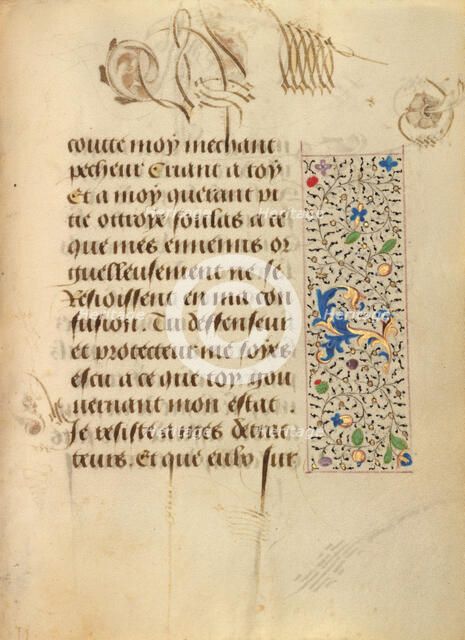 coutte moy mechant
pecheur Criant a toy
Et a moy querant pi
tie ottroye soulas a ce
que mes ennemis or
guelleusement ne se
resioissent en ma con
fusion. Tu deffenseur
et protecteur me soyes
escu a ce que toy gou
uernant mon estat.
Je resiste a mes detrac
teurs. Et que enby sur